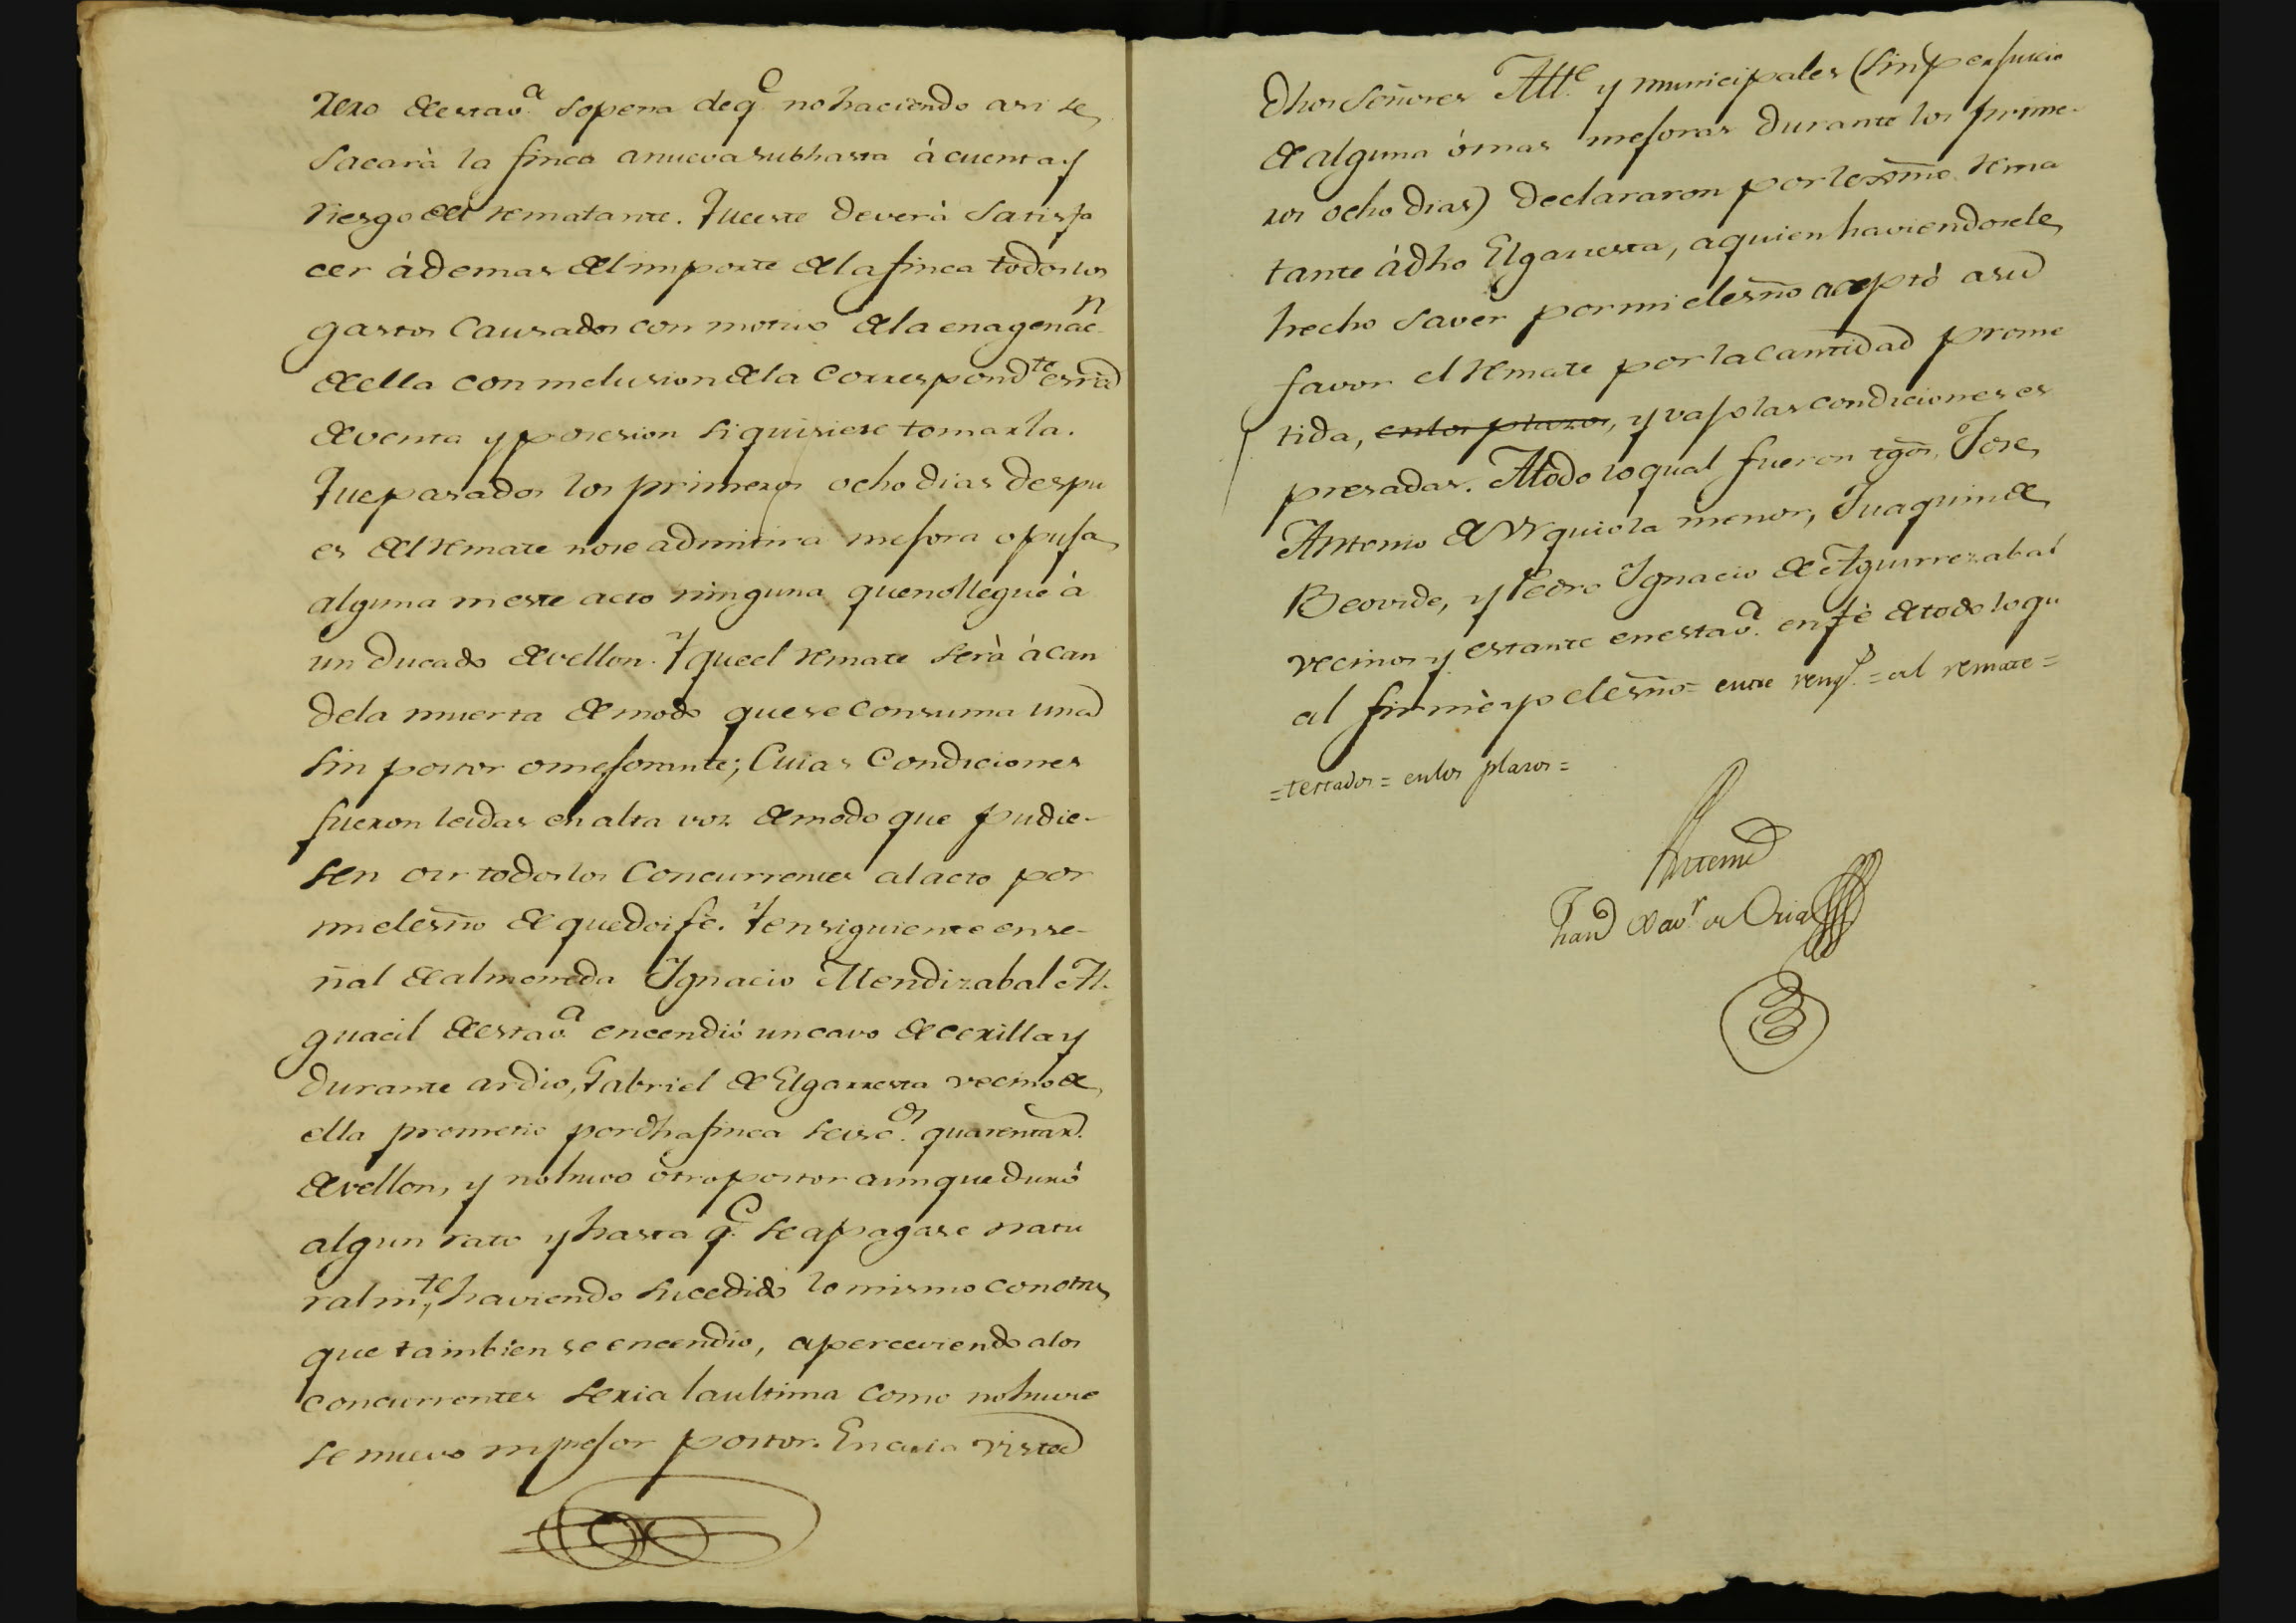 rero de esta v.ª so pena de q.e no haciendo asi se
sacarà la finca a nueva subhasta à cuenta y
riesgo del rematante. Que este deverà satisfa
cer àdemas del importe de la finca todos los
gastos causados con motivo de la enagenac.n
de ella con inclusion de la correspond.te esrià
de venta y posesion si quisiere tomarla.
Que pasados los primeros ocho dias despu
es del remate no se admitira mejora o puja
alguna ni este acto ninguna que no llegue à
un ducado de vellon. Y que el remate serà à can
dela muerta de modo que se consuma una
sin postor o mejorante; Cuias Condiciones
fueron leidas en alta voz de modo que pudie-
sen oir todos los Concurrentes al acto por
mi el esño de que doi fe. Y en siguiente en se-
ñal de almoneda Ignacio Mendizabal Al-
guacil de esta v.ª encendió un cavo de cerilla y
durante ardio, Gabriel de Elgarresta vecino de
ella prometio por dha finca seisc.os quarenta r.
de vellon, y no huvo òtro postor aunque duró
algun rato y hasta q.e se apagase natu
ralm.te, haviendo sucedido lo mismo con otra
que tambien se encendio, aperceviendo a los
concurrentes seria la ultima como no huvie
se nuevo mejor postor. En cuia vista
dhos Señores Alc.e y municipales (sin perjuicio
de alguna ó mas mejoras durante los prime-
ros ocho dias) declararon por lexmo rema
tante á dho Elgarresta, a quien haviendosele
hecho saver por mi el esño aceptó a su
favor el remate por la cantidad prome
tida, en los plazos, y vajo las condiciones es
presadas. A todo lo qual fueron tgos, Jose
Antonio de Urquiola menor, Juaquin de
Beovide, y Pedro Ignacio de Aguirrezabal
vecinos y estante en esta v.ª en fè de todo lo qu
al firmè yo el esño = entre reng.s = al remate =
= testados = en los plazos =
Ante mi
Juan Xav.r de Oria